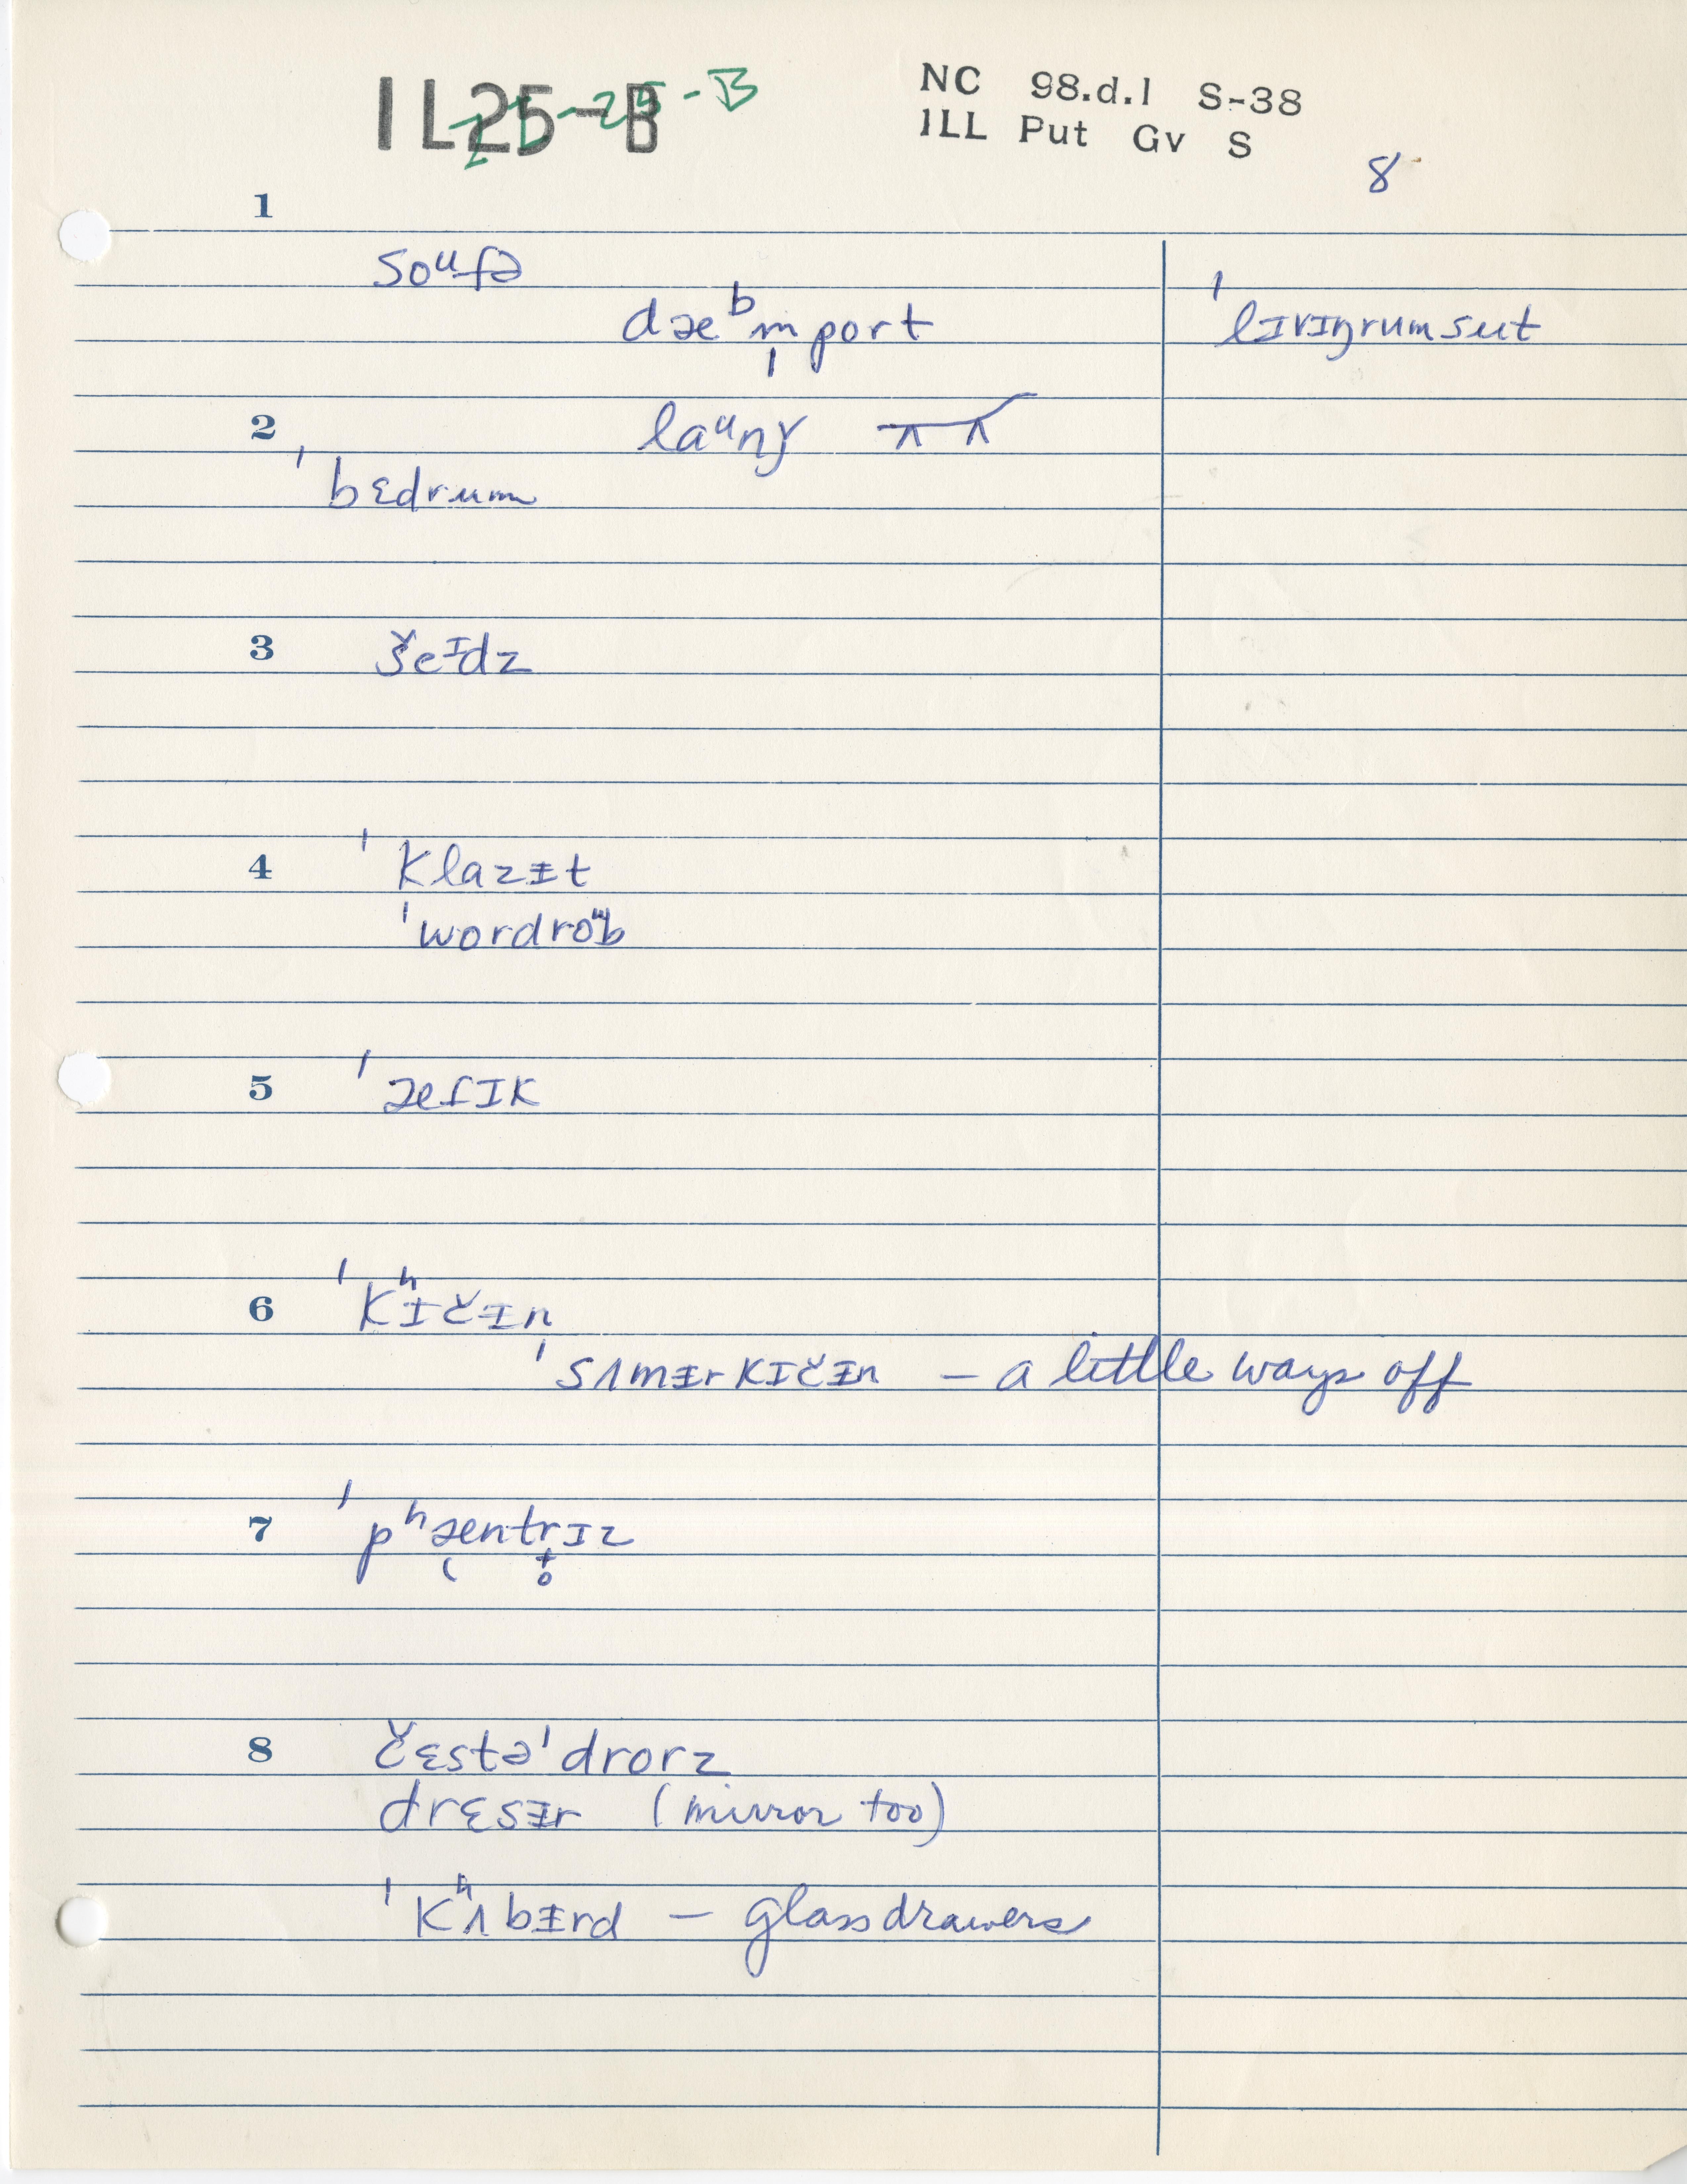 IL25-B
IL-25-B
NC 98.d.1 S-38
ILL Put Gv S
8
1
soᵘfə
dæᵇm̩port
ˈlɪvɪŋrumsut
2
laᵘnǰ
ˈbɛdrum
3
šeᶦdz
4
ˈklazɨt
ˈwordroᵘb
5
ˈæfɪk
6
ˈkʰɪčɨn
ˈsʌmɨrkɪčɨn – a little ways off
7
ˈpʰæntrɪz
8
čɛstəˈdrorz
drɛsɨr (mirror too)
ˈkʰʌbɨrd – glass drawers